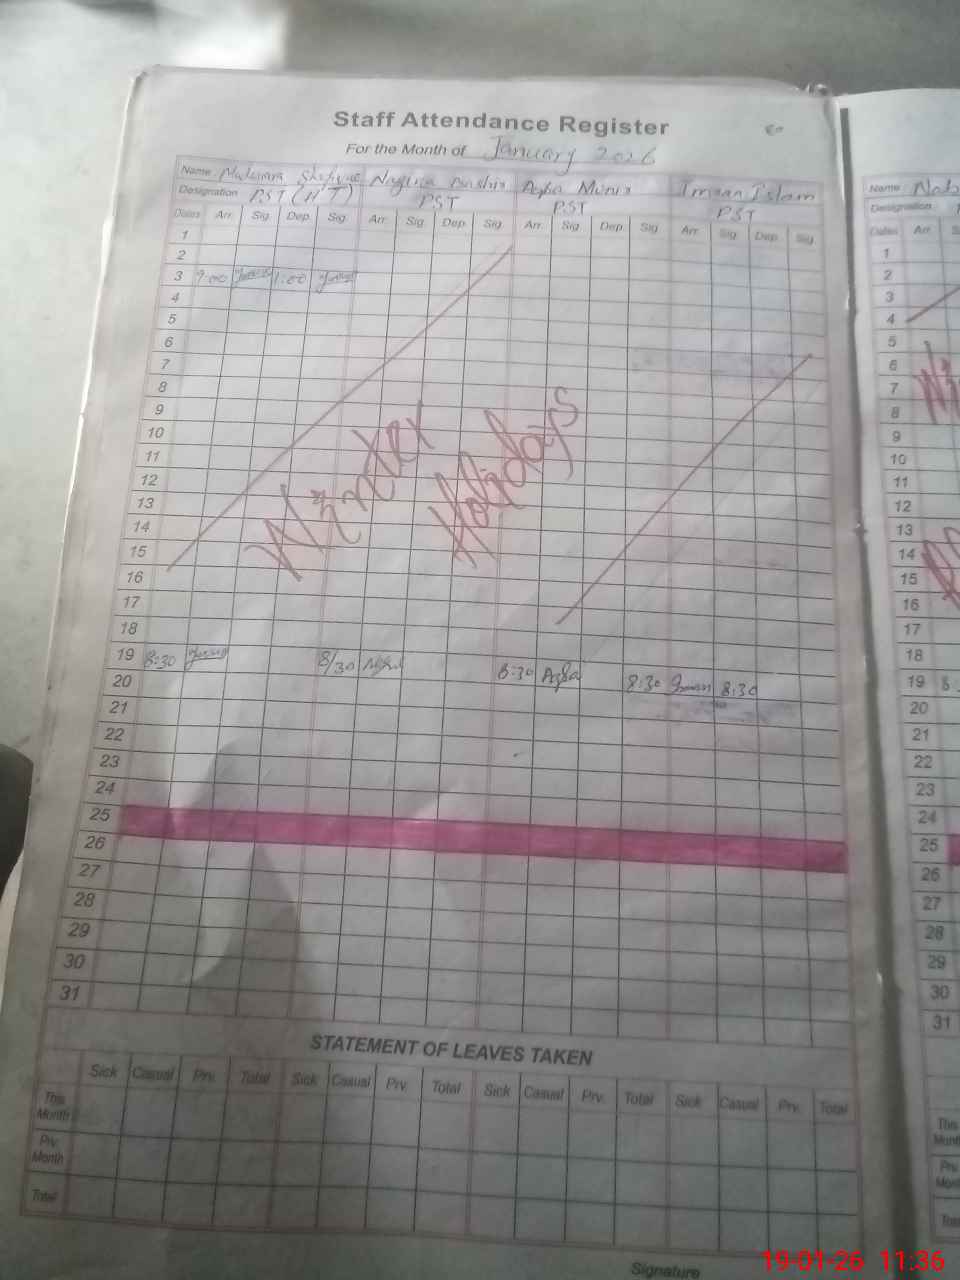 Staff Attendance Register
For the Month of January 2026
Name Nagina Bashir Aqba Imran Islam
Designation PST (HT) PST PST PST
Dates Arr. Sig. Dep. Sig. Arr. Sig. Dep. Sig. Arr. Sig. Dep. Sig. Arr. Sig. Dep. Sig.
1
2
3 9:00 1:00
4
5
6
7
8
9
10
11
12
13
14
15
16
17
18
Winter Holidays
19 8:30 8/30 8:30 Aqba 8:30 8:30
20
21
22
23
24
25
26
27
28
29
30
31
STATEMENT OF LEAVES TAKEN
Sick Casual Prv. Total Sick Casual Prv. Total Sick Casual Prv. Total Sick Casual Prv. Total
This Month
Prv. Month
Total
Signature
Name
Designation
Dates Arr.
1
2
3
4
5
6
7
8
9
10
11
12
13
14
15
16
17
18
19 8
20
21
22
23
24
25
26
27
28
29
30
31
19-01-26 11:36